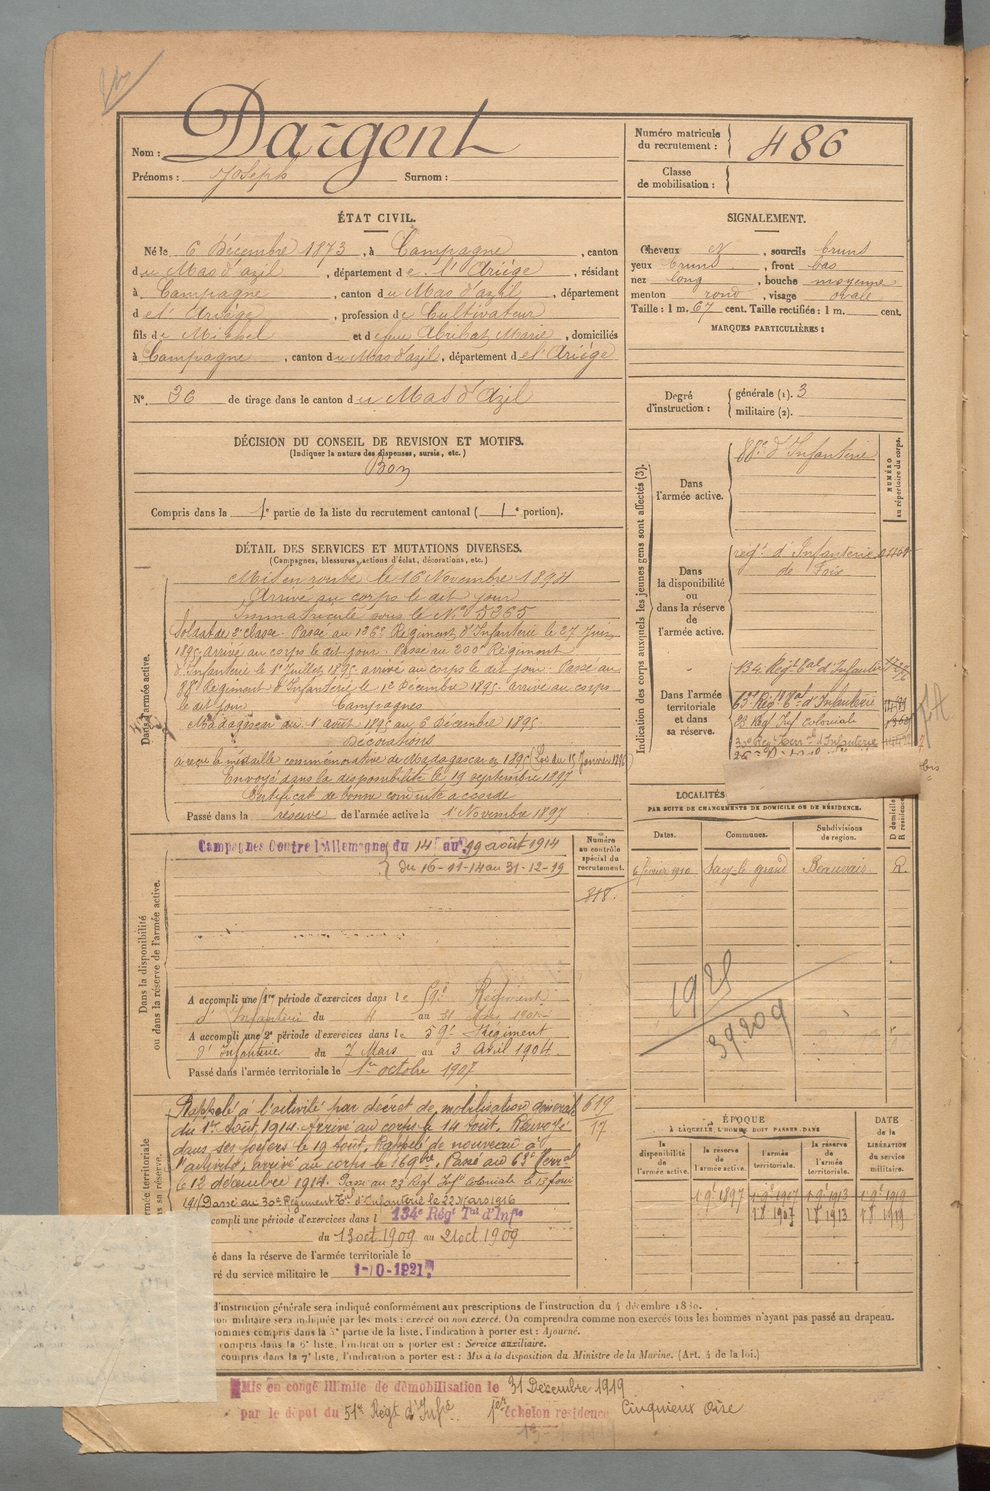 Nom : Dargent
Prénoms : Joseph Surnom :
Numéro matricule du recrutement : 486
Classe de mobilisation :
ÉTAT CIVIL.
Né le 6 Décembre 1873, à Campagne, canton
du Mas d'azil, département de l'Ariège, résidant
à Campagne, canton du Mas d'azil, département
de l'Ariège, profession de Cultivateur
fils de Michel et de Abribat Marie, domiciliés
à Campagne, canton du Mas d'azil, département de l'Ariège
N° 36 de tirage dans le canton du Mas d'Azil
SIGNALEMENT.
Cheveux et, sourcils bruns
yeux bruns, front bas
nez long, bouche moyenne
menton rond, visage ovale
Taille : 1 m. 67 cent. Taille rectifiée : 1 m. cent.
MARQUES PARTICULIÈRES :
DÉCISION DU CONSEIL DE REVISION ET MOTIFS.
(Indiquer la nature des dispenses, sursis, etc.)
Bon
Compris dans la 1e partie de la liste du recrutement cantonal (1e portion).
Degré d'instruction :
générale (1). 3
militaire (2).
DÉTAIL DES SERVICES ET MUTATIONS DIVERSES.
(Campagnes, blessures, actions d'éclat, décorations, etc.)
Dans l'armée active.
Mis en route le 16 Novembre 1894
Arrivé au corps le dit jour
Immatriculé sous le N° 5365
Soldat de 2e classe. Passé au 126e Régiment d'Infanterie le 27 Juin
1895 arrivé au corps le dit jour. Passé au 200e Régiment
d'Infanterie le 1er Juillet 1895 arrivé au corps le dit jour. Passé au
88e Régiment d'Infanterie le 1er Décembre 1895 arrivé au corps
le dit jour Campagnes
Madagascar du 1er août 1895 au 6 décembre 1895
Décorations
a reçu la médaille commémorative de Madagascar 1895 (Loi du 15 Janvier 1896)
Envoyé dans la disponibilité le 19 septembre 1897
Certificat de bonne conduite accordé
Passé dans la réserve de l'armée active le 1er Novembre 1897
Indication des corps auxquels les jeunes gens sont affectés (3).
NUMÉRO au répertoire du corps.
Dans l'armée active.
88e d'Infanterie
Dans la disponibilité ou dans la réserve de l'armée active.
régt. d'Infanterie
de Foix
Dans l'armée territoriale et dans sa réserve.
134 Régt tal d'Infanterie
63e Régt tal d'Infanterie
23 Régt Inf coloniale
30e Régt Terr. d'Infanterie
bis
LOCALITÉS
PAR SUITE DE CHANGEMENTS DE DOMICILE OU DE RÉSIDENCE.
Dates. Communes. Subdivisions de région. D domicile R résidence
6 février 1910 Sacy-le grand Beauvais R.
1925
39209
Dans la disponibilité ou dans la réserve de l'armée active.
Campagnes Contre l'Allemagne du 14 au 19 août 1914
du 16-11-14 au 31-12-19
Numéro au contrôle spécial du recrutement.
818
A accompli une 1re période d'exercices dans le 59e Régiment
d'Infanterie du 4 au 31
A accompli une 2e période d'exercices dans le 59e Régiment
d'Infanterie du 7 Mars au 3 Avril 1904
Passé dans l'armée territoriale le 1er octobre 1907
Rappelé à l'activité par décret de mobilisation générale
du 1er Août 1914. Arrivé au corps le 14 août, Renvoyé
dans ses foyers le 19 Août. Rappelé de nouveau à
l'activité, arrivé au corps le 16 9bre. Passé au 63e Terral
le 12 décembre 1914. Passé au 23 Régt Inf Coloniale le 15 Juin
1915 Passé au 30e Régiment Tal d'Infanterie le 22 Mars 1916
619
17
compli une période d'exercices dans l 134e Régt Tal d'Infie
du 13 oct. 1909 au 21 oct. 1909
é dans la réserve de l'armée territoriale le
ré du service militaire le 1-10-1921
ÉPOQUE
À LAQUELLE L'HOMME DOIT PASSER DANS
la disponibilité de l'armée active. la réserve de l'armée active. l'armée territoriale. la réserve de l'armée territoriale.
DATE de la LIBÉRATION du service militaire.
1 9e 1897 1 9e 1907 1 9e 1913 1 9e 1919
1 8 1907 1 8 1913 1 8 1919
d'instruction générale sera indiqué conformément aux prescriptions de l'instruction du 4 décembre 1889.
on militaire sera indiquée par les mots : exercé ou non exercé. On comprendra comme non exercés tous les hommes n'ayant pas passé au drapeau.
hommes compris dans la 5e partie de la liste, l'indication à porter est : Ajourné.
compris dans la 6e liste, l'indication à porter est : Service auxiliaire.
compris dans la 7e liste, l'indication à porter est : Mis à la disposition du Ministre de la Marine. (Art. 4 de la loi.)
Mis en congé illimité de démobilisation le 31 Décembre 1919
par le dépôt du 51e Régt d'Infie 1er échelon résidence Cinquieux Oise